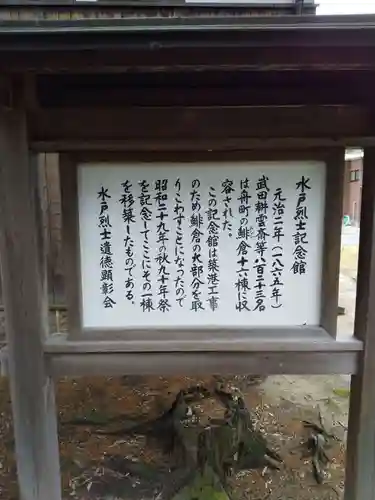 水戸烈士記念館
元治二年（一八六五年）
武田耕雲斎等八百二十三名
は舟町の鯡倉十六棟に収
容された。
この記念館は築港工事
のため鯡倉の大部分を取
りこわすことになったので
昭和二十九年の秋九十年祭
を記念してここにその一棟
を移築したものである。
水戸烈士遺徳顕彰会